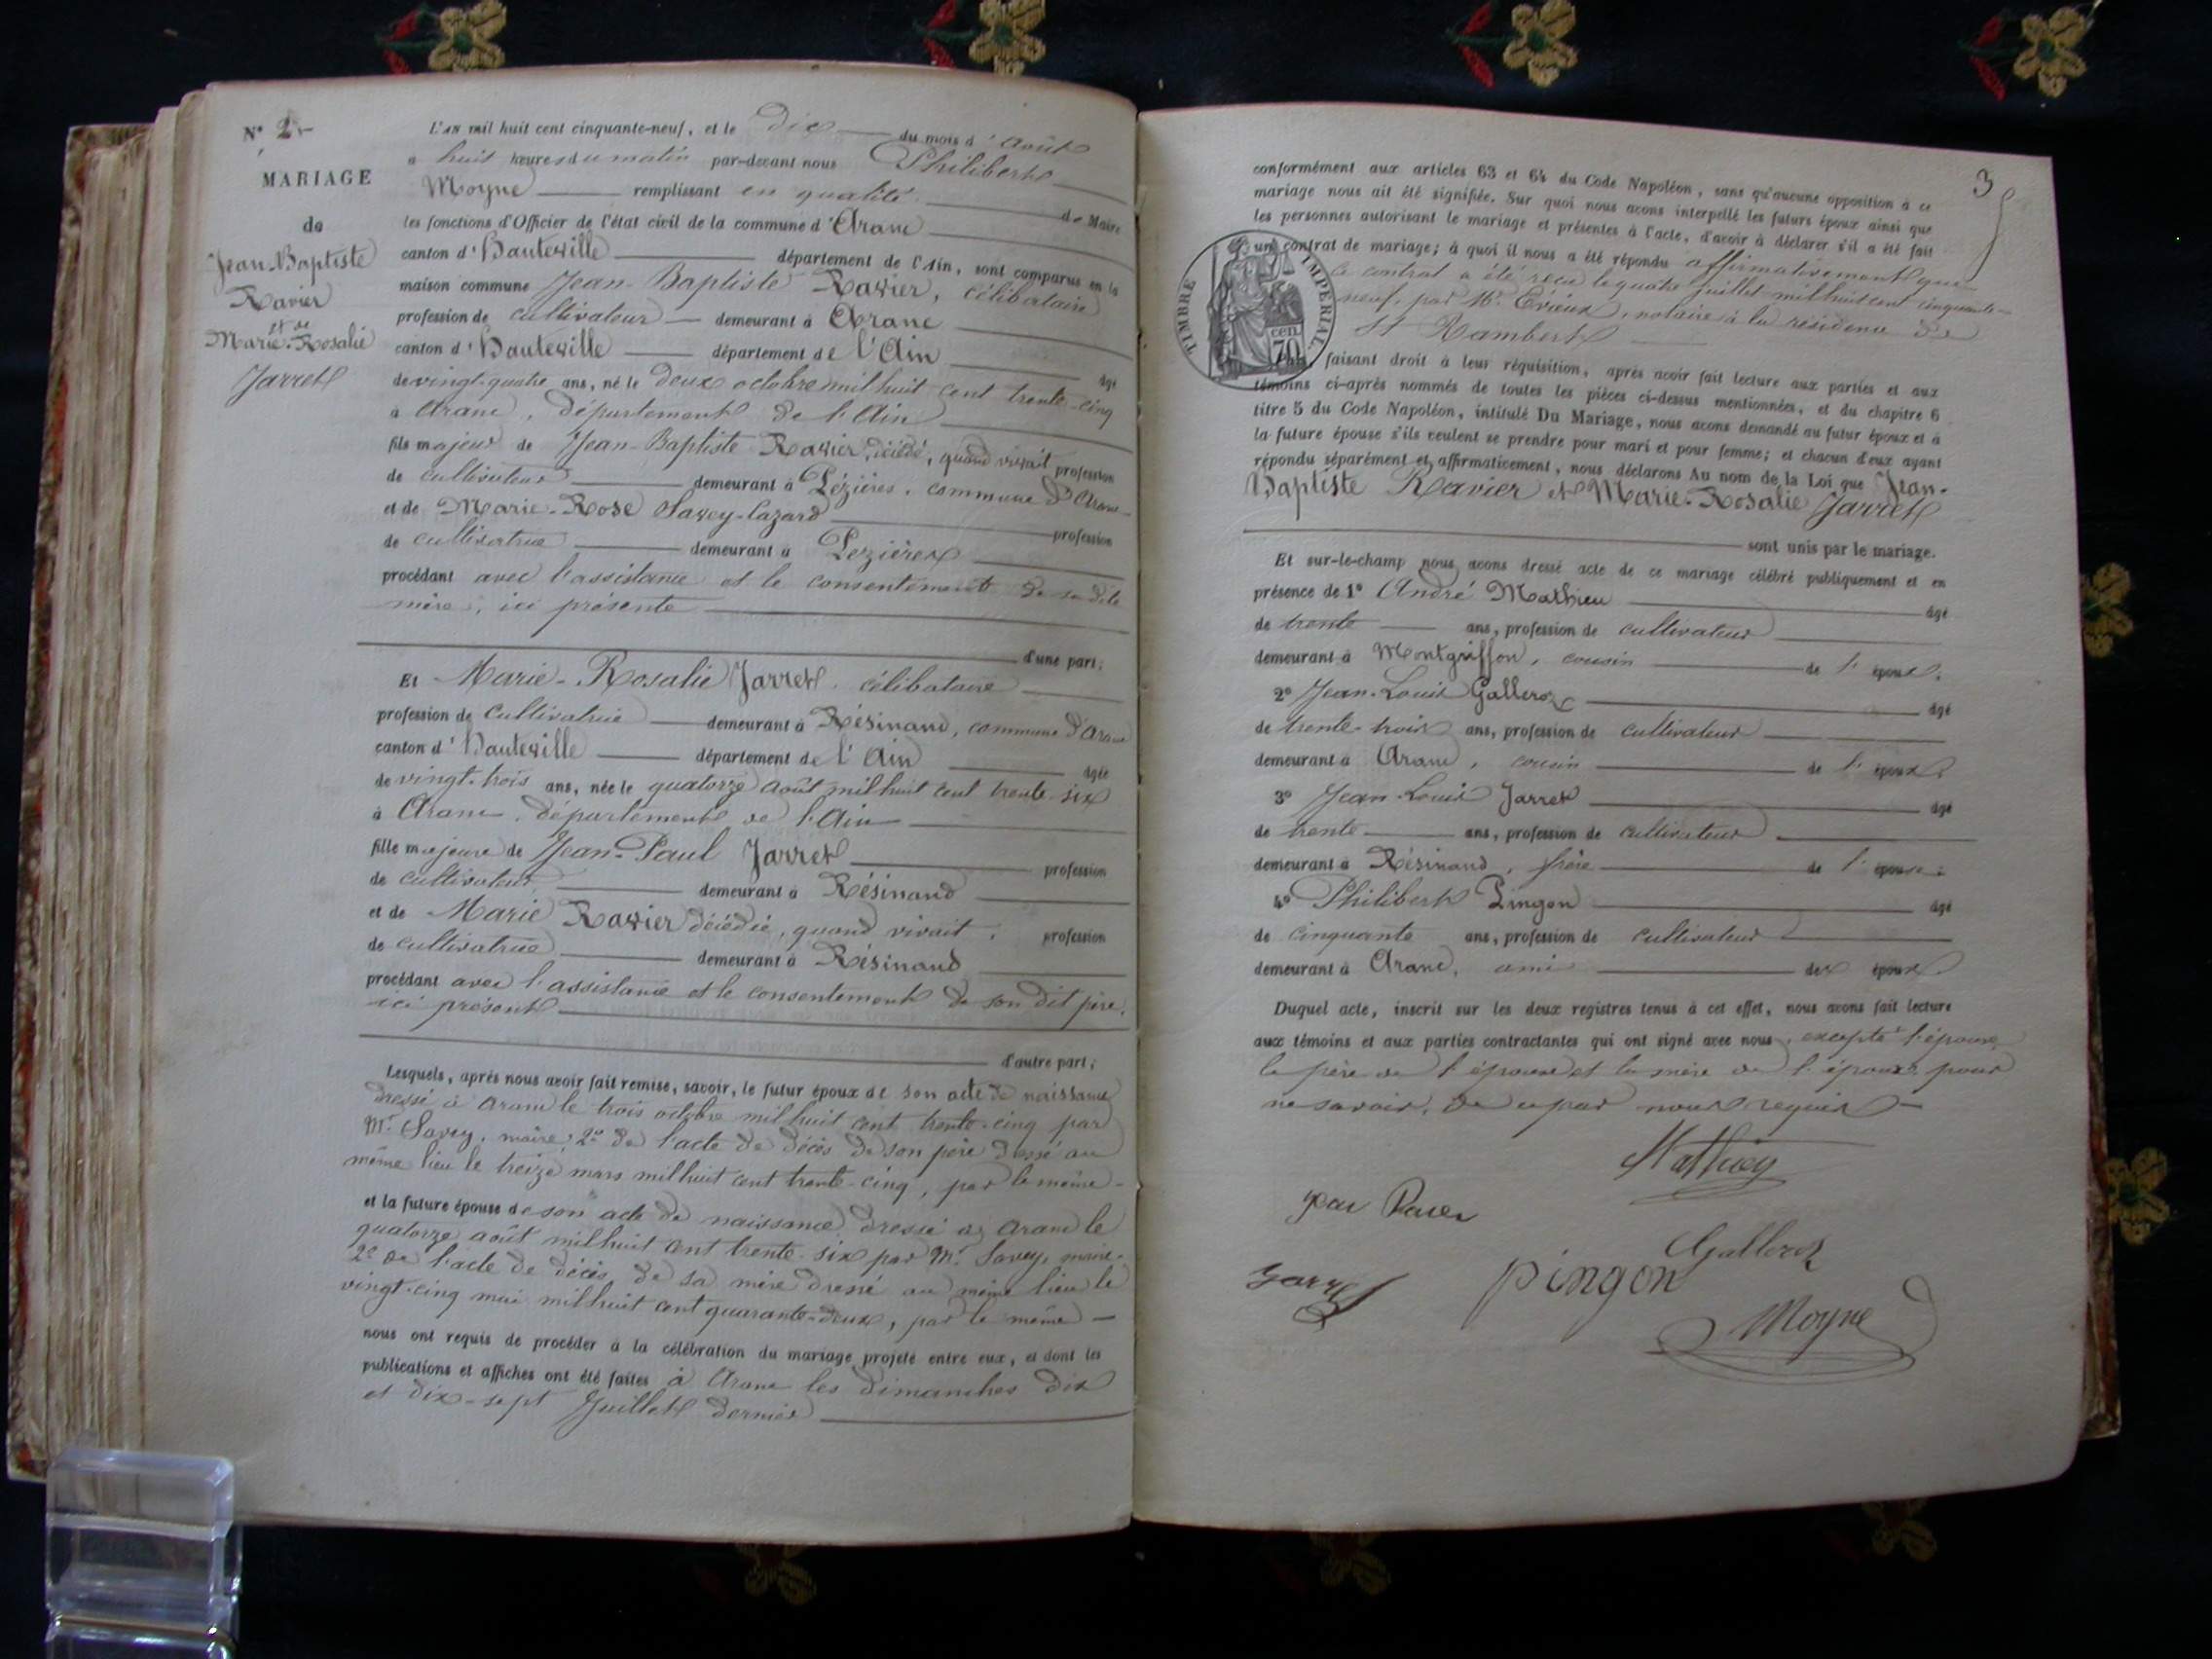 N° 2
MARIAGE
de
Jean-Baptiste
Ravier
et de
Marie-Rosalie
Jarret
L'an mil huit cent cinquante-neuf, et le dix du mois d'août
à huit heures du matin par-devant nous Philibert
Moyne remplissant en qualité de Maire
les fonctions d'Officier de l'état civil de la commune d'Aranc
canton d'Hauteville département de l'Ain, sont comparus en la
maison commune Jean-Baptiste Ravier, célibataire
profession de cultivateur demeurant à Aranc
canton d'Hauteville département de l'Ain âgé
de vingt-quatre ans, né le deux octobre mil huit cent trente-cinq
à Aranc, département de l'Ain
fils majeur de Jean-Baptiste Ravier, décédé, quand vivait profession
de cultivateur demeurant à Lézières, commune d'Aranc
et de Marie-Rose Savey-Cazard profession
de cultivatrice demeurant à Lézières
procédant avec l'assistance et le consentement de sa dite
mère, ici présente
d'une part;
Et Marie-Rosalie Jarret, célibataire
profession de cultivatrice demeurant à Résinand, commune d'Aranc
canton d'Hauteville département de l'Ain âgée
de vingt-trois ans, née le quatorze août mil huit cent trente-six
à Aranc, département de l'Ain
fille majeure de Jean-Paul Jarret profession
de cultivateur demeurant à Résinand
et de Marie Ravier décédée, quand vivait, profession
de cultivatrice demeurant à Résinand
procédant avec l'assistance et le consentement de son dit père,
ici présent
d'autre part;
Lesquels, après nous avoir fait remise, savoir, le futur époux de son acte de naissance
dressé à Aranc le trois octobre mil huit cent trente-cinq par
Mr Savey, maire; 2° de l'acte de décès de son père dressé au
même lieu le treize mars mil huit cent trente-cinq, par le même
et la future épouse de son acte de naissance dressé à Aranc le
quatorze août mil huit cent trente-six par Mr Savey, maire
2° de l'acte de décès de sa mère dressé au même lieu le
vingt-cinq mai mil huit cent quarante-deux, par le même
nous ont requis de procéder à la célébration du mariage projeté entre eux, et dont les
publications et affiches ont été faites à Aranc les dimanches dix
et dix-sept Juillet dernier
3
conformément aux articles 63 et 64 du Code Napoléon, sans qu'aucune opposition à ce
mariage nous ait été signifiée. Sur quoi nous avons interpellé les futurs époux ainsi que
les personnes autorisant le mariage et présentes à l'acte, d'avoir à déclarer s'il a été fait
un contrat de mariage; à quoi il nous a été répondu affirmativement que
le contrat a été reçu le quatre juillet mil huit cent cinquante-
neuf, par Mr Evieux, notaire à la résidence de
St Rambert
TIMBRE IMPÉRIAL
70 cen.
faisant droit à leur réquisition, après avoir fait lecture aux parties et aux
témoins ci-après nommés de toutes les pièces ci-dessus mentionnées, et du chapitre 6
titre 5 du Code Napoléon, intitulé Du Mariage, nous avons demandé au futur époux et à
la future épouse s'ils veulent se prendre pour mari et pour femme; et chacun d'eux ayant
répondu séparément et affirmativement, nous déclarons Au nom de la Loi que Jean-
Baptiste Ravier et Marie-Rosalie Jarret
sont unis par le mariage.
Et sur-le-champ nous avons dressé acte de ce mariage célébré publiquement et en
présence de 1° André Mathieu âgé
de trente ans, profession de cultivateur
demeurant à Montgriffon, cousin de l'époux;
2° Jean-Louis Galleroz âgé
de trente-trois ans, profession de cultivateur
demeurant à Aranc, cousin de l'époux;
3° Jean-Louis Jarret âgé
de trente ans, profession de cultivateur
demeurant à Résinand, frère de l'épouse;
4° Philibert Pingon âgé
de cinquante ans, profession de cultivateur
demeurant à Aranc, ami des époux
Duquel acte, inscrit sur les deux registres tenus à cet effet, nous avons fait lecture
aux témoins et aux parties contractantes qui ont signé avec nous, excepté l'épouse,
le père de l'épouse et la mère de l'époux, pour
ne savoir, de ce par nous requis
Pingon
Galleroz
Jarret
Moyne